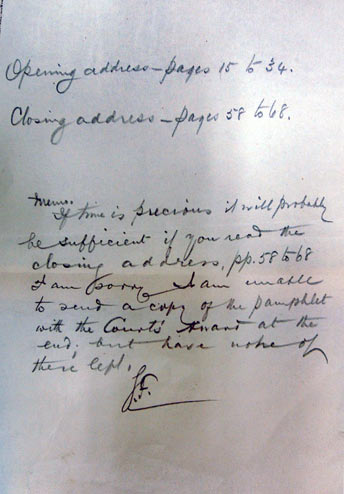 Opening address – pages 15 to 34.
Closing address – pages 58 to 68.
Memo.
If time is precious it will probably
be sufficient if you read the
closing address, pp. 58 to 68
I am sorry I am unable
to send a copy of the pamphlet
with the Courts' Award at the
end; but have none of
these left.